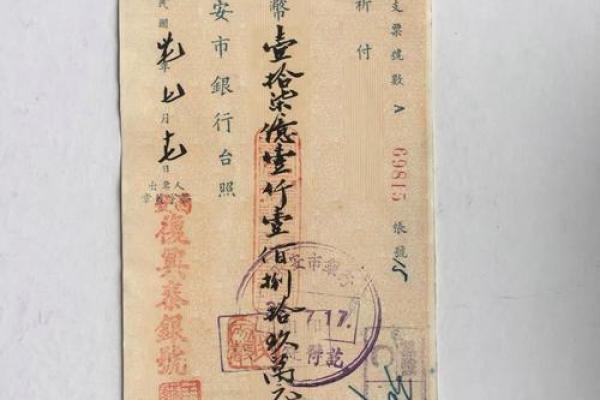 支票號數 A 69815 帳號
祈付
幣壹拾柒億壹仟壹佰捌拾玖萬元
安市銀行台照
民國卅七年七月十七日
出票人
復興泰銀號
市銀
7.17.
付訖